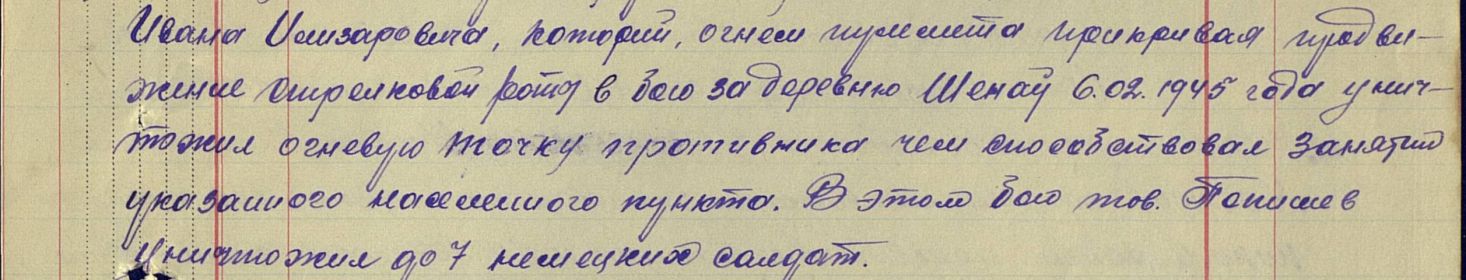 Ивана Елизаровича, который, огнем пулемета прикривая продви-
жение стрелковой роты в бою за деревню Шенау 6.02.1945 года унич-
тожил огневую точку противника чем способствовал занятию
указанного населенного пункта. В этом бою тов. Попишев
уничтожил до 7 немецких солдат.